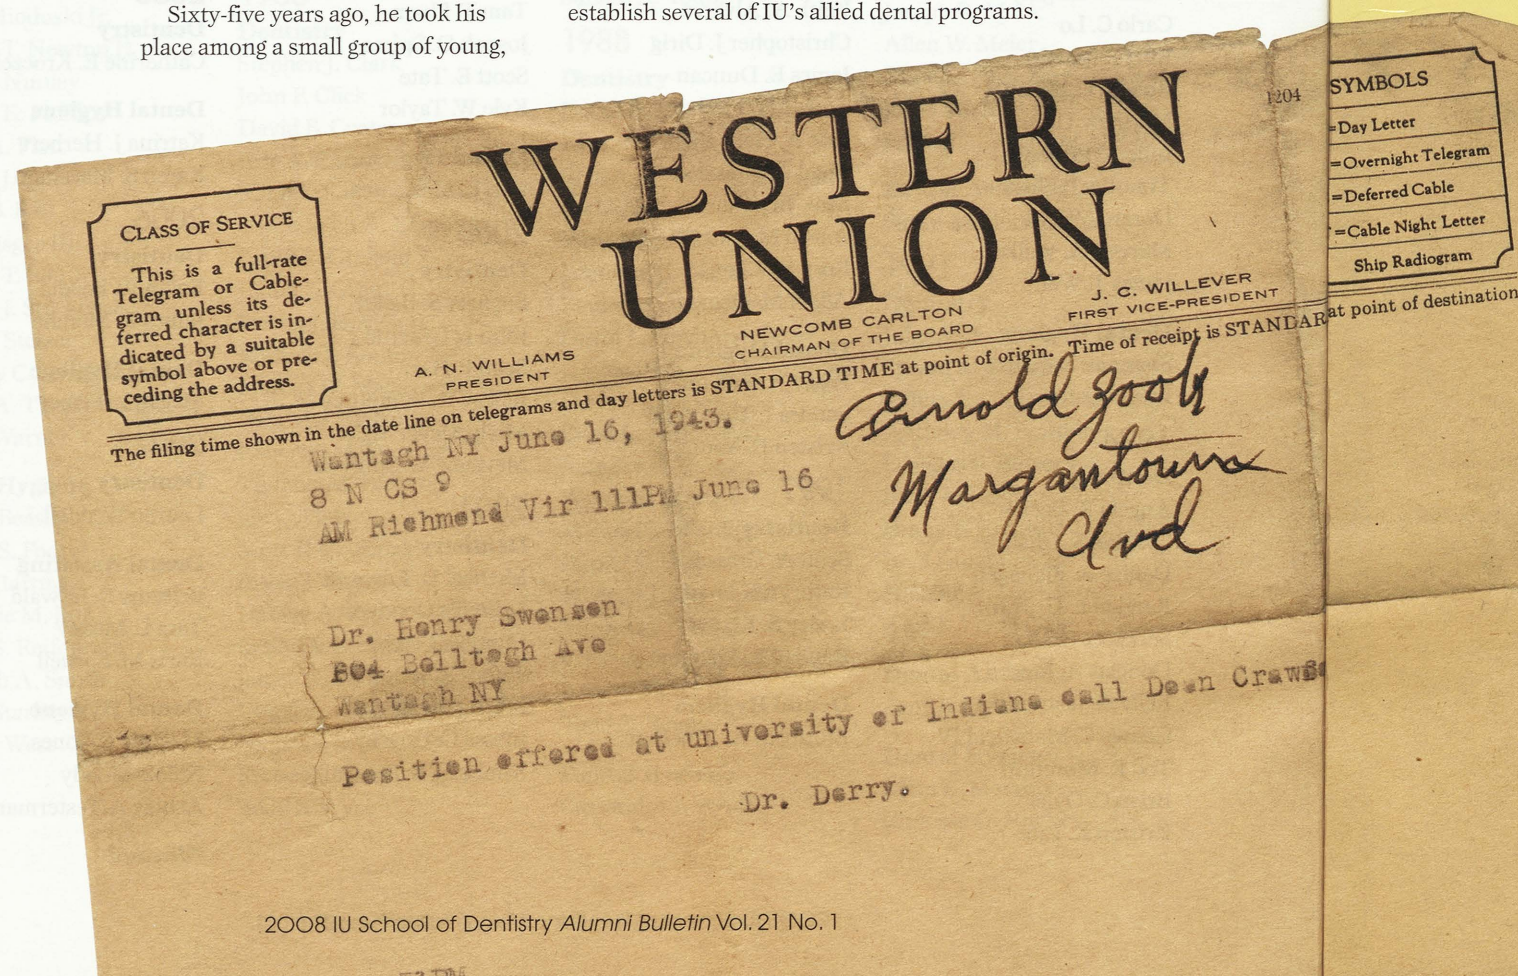 Sixty-five years ago, he took his
place among a small group of young,
establish several of IU's allied dental programs.
1204
WESTERN
UNION
CLASS OF SERVICE
This is a full-rate
Telegram or Cable-
gram unless its de-
ferred character is in-
dicated by a suitable
symbol above or pre-
ceding the address.
A. N. WILLIAMS
PRESIDENT
NEWCOMB CARLTON
CHAIRMAN OF THE BOARD
J. C. WILLEVER
FIRST VICE-PRESIDENT
SYMBOLS
=Day Letter
=Overnight Telegram
=Deferred Cable
=Cable Night Letter
Ship Radiogram
The filing time shown in the date line on telegrams and day letters is STANDARD TIME at point of origin. Time of receipt is STANDAR
at point of destination
Wantagh NY June 16, 1943.
8 N CS 9
AM Richmond Vir 111PM June 16
Arnold Zook
Margantown
Ave
Dr. Henry Swenson
804 Belltagh Ave
Wantagh NY
Position offered at university of Indiana call Dean Craw
Dr. Derry.
2008 IU School of Dentistry Alumni Bulletin Vol. 21 No. 1